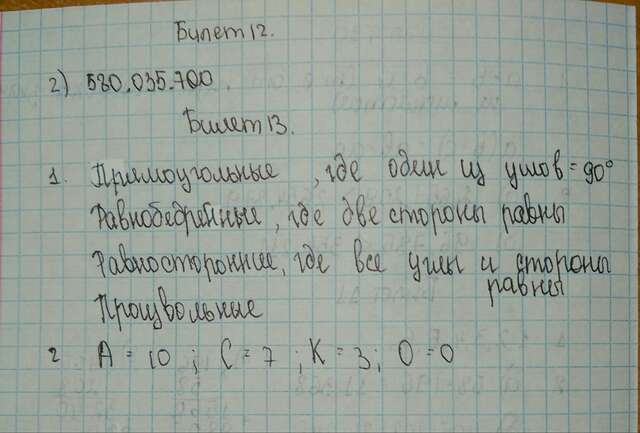 Билет 12.
2) 580.035.700
Билет 13.
1. Прямоугольные , где один из углов = 90°
Равнобедренные, где две стороны равны
Равносторонние, где все углы и стороны
равны
Произвольные
2 А = 10 ; С = 7 ; К = 3; О = 0